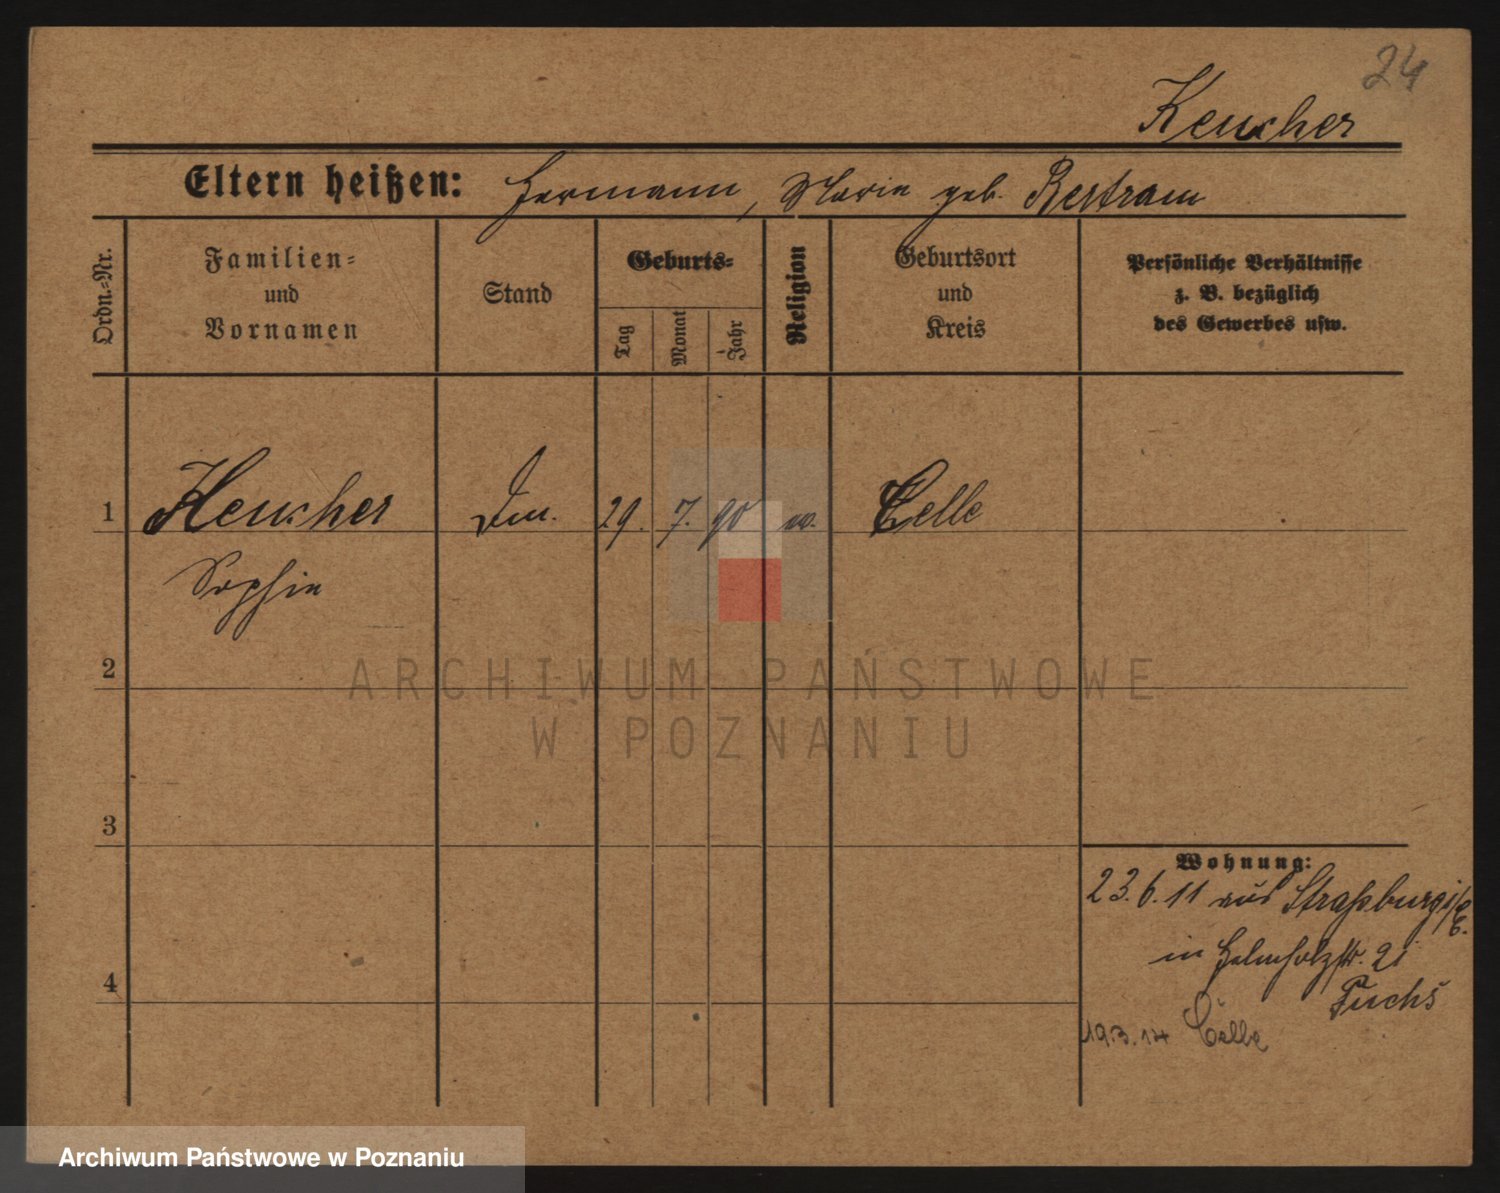 24
Keucher
Eltern heißen: Hermann, Marie geb. Bertram
Ordn.-Nr.
Familien-
und
Vornamen
Stand
Geburts-
Tag
Monat
Jahr
Religion
Geburtsort
und
Kreis
Persönliche Verhältnisse
z. B. bezüglich
des Gewerbes usw.
1 Keucher 29. 7. 90 Celle
Sophie
2
ARCHIWUM PAŃSTWOWE
W POZNANIU
3
Wohnung:
23.6.11 aus Straßburg i/E.
in Helmholzstr. 21
Fuchs
4
19.3.14 Celle
Archiwum Państwowe w Poznaniu